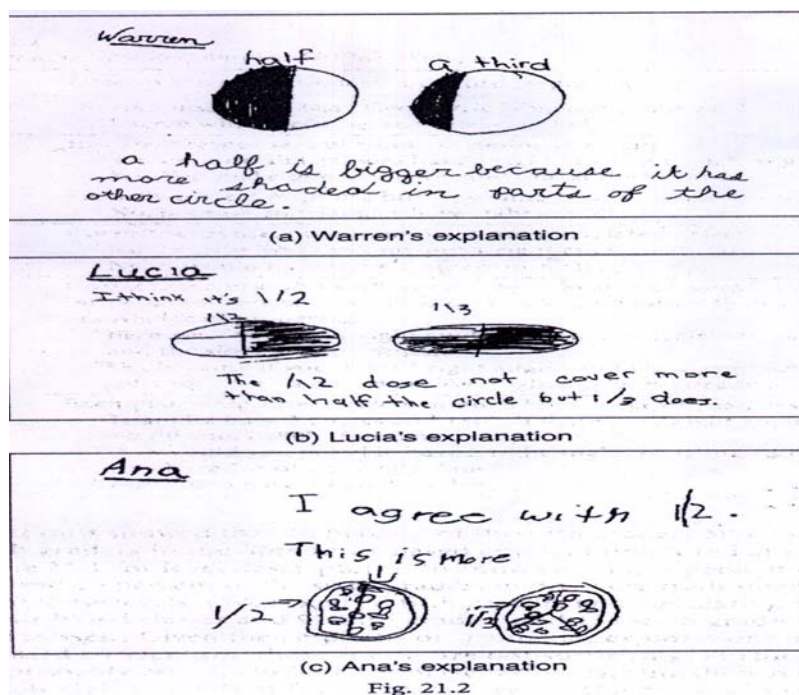 Warren
half
a third
a half is bigger because it has
more shaded in parts of the
other circle.
(a) Warren's explanation
Lucia
I think it's 1\2
1\2
1\3
The 1\2 dose not cover more
than half the circle but 1/3 does.
(b) Lucia's explanation
Ana
I agree with 1/2.
This is more
1/2
1/3
(c) Ana's explanation
Fig. 21.2